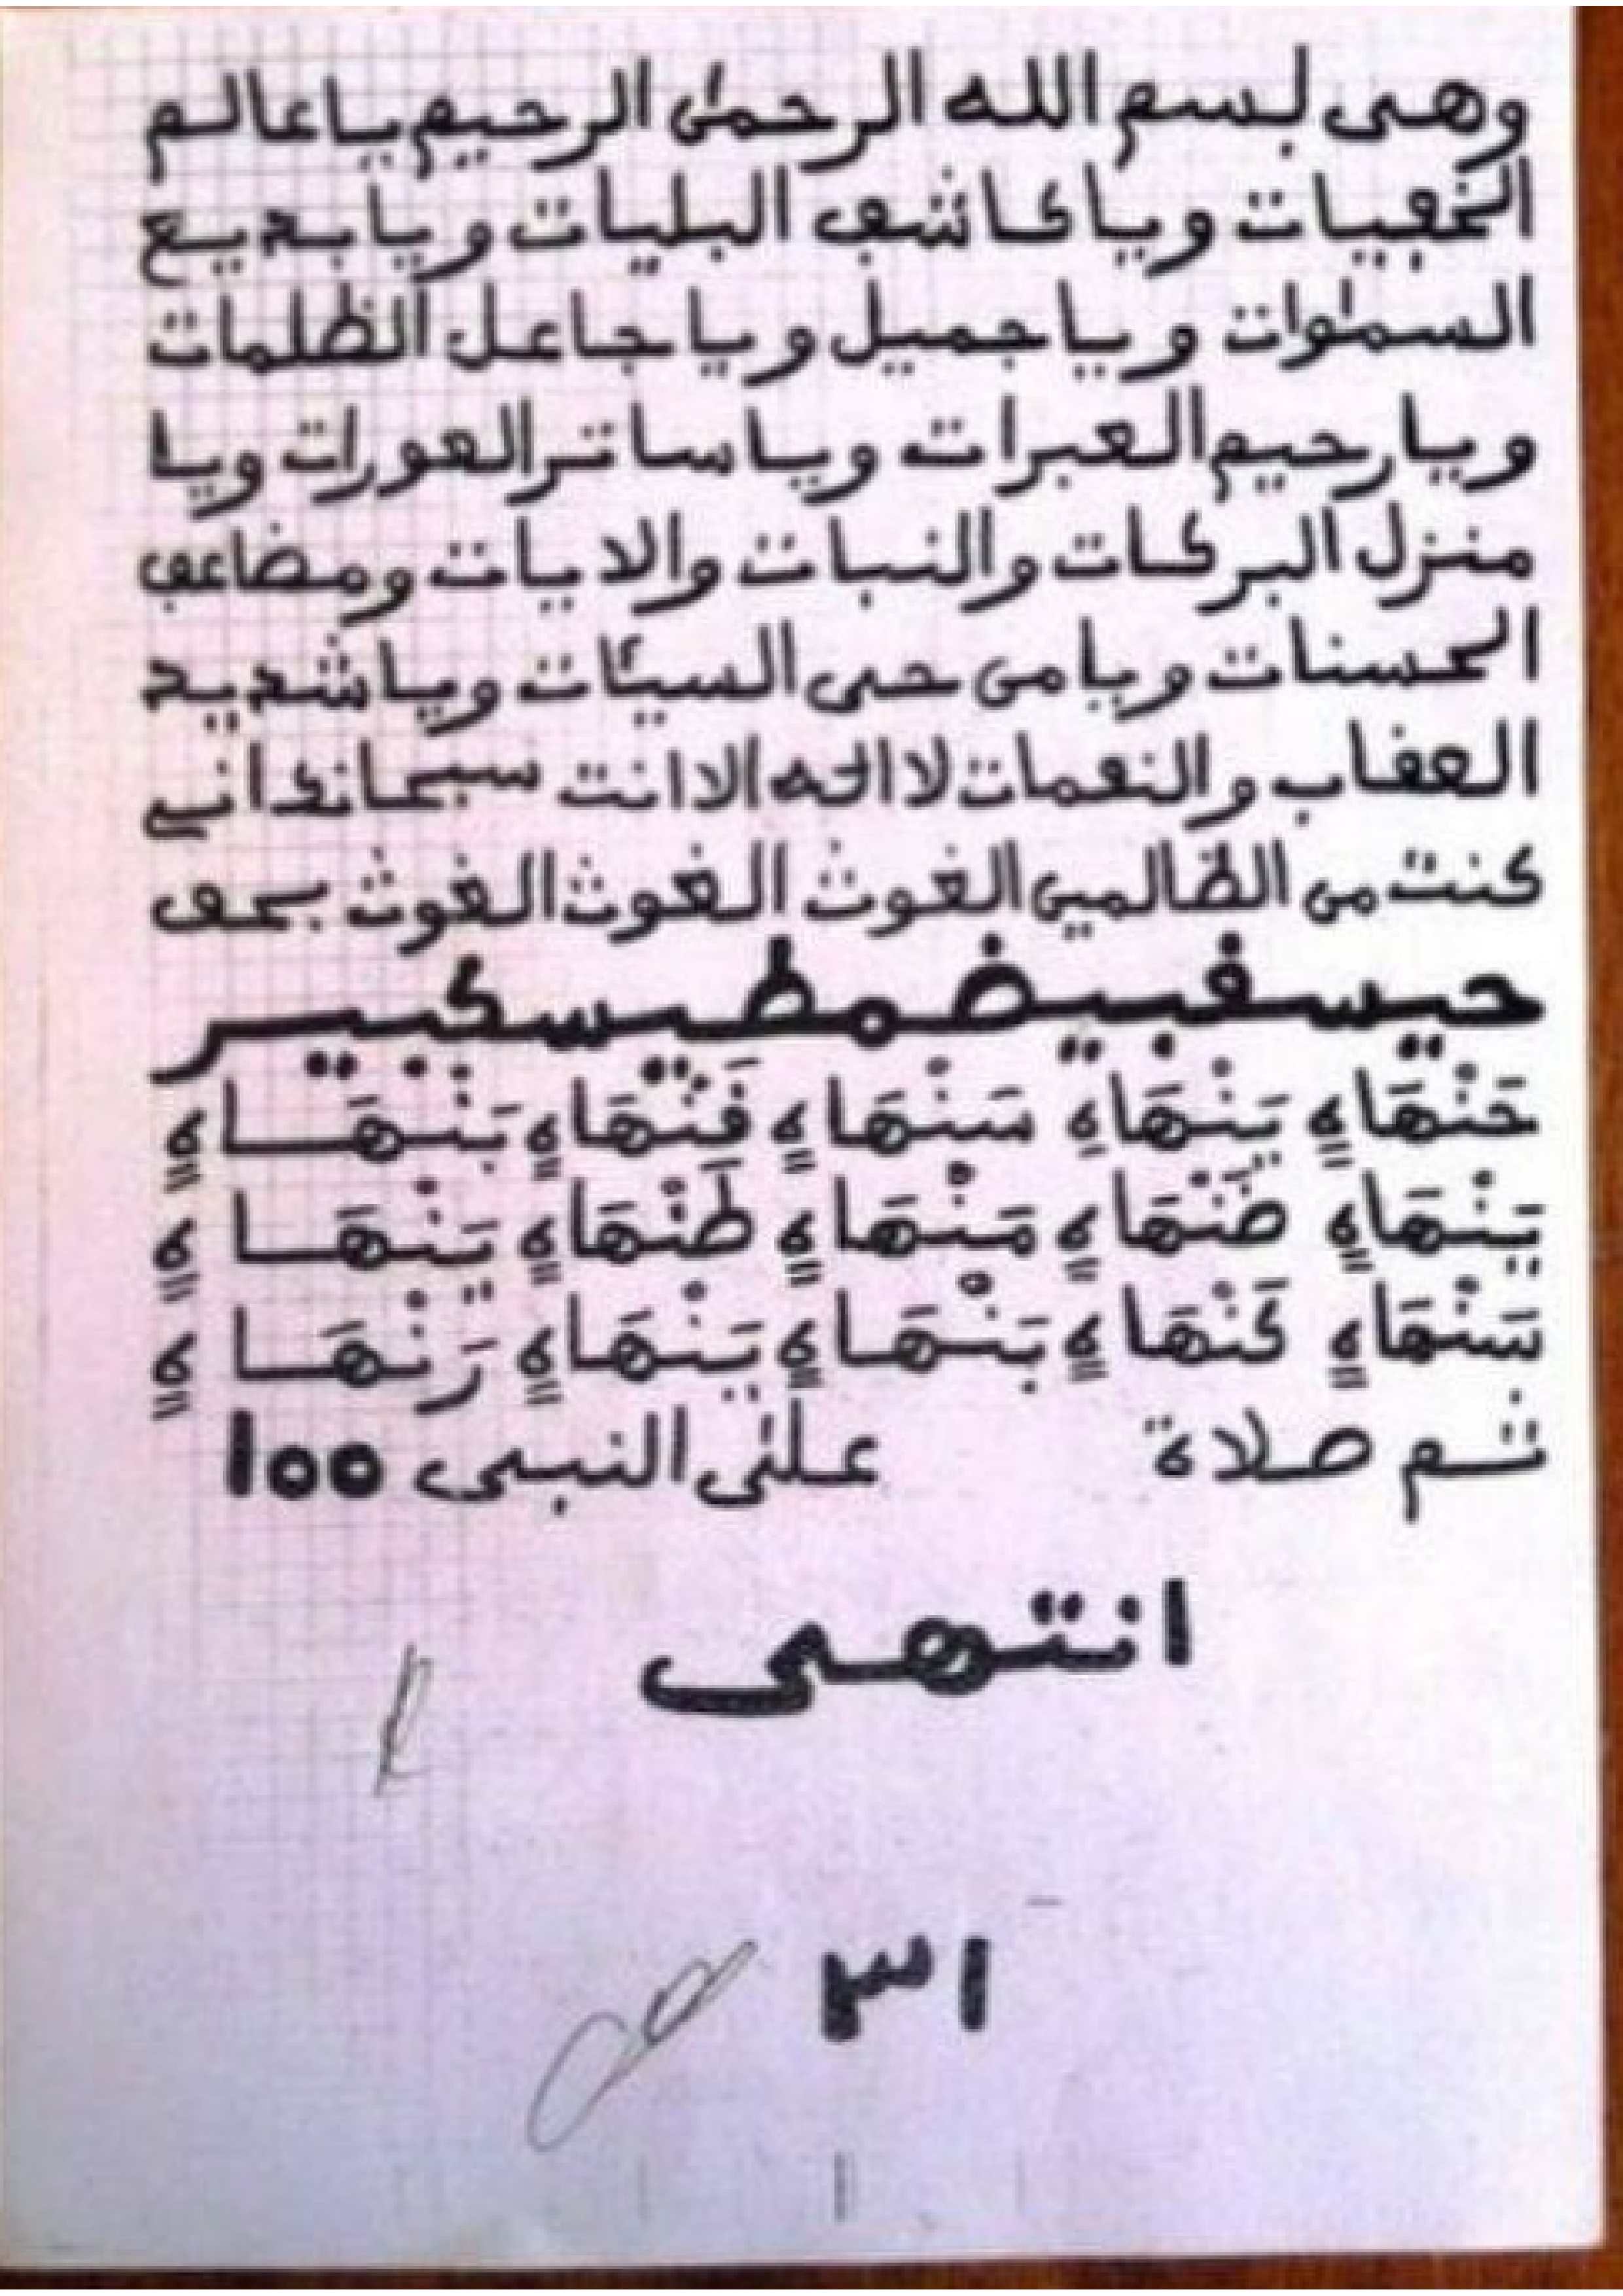 وهى بسم الله الرحمٰن الرحيم يا عالم
الخفيات ويا كاشف البليات ويا بديع
السمٰوات ويا جميل ويا جاعل الظلمات
ويا رحيم العبرات ويا ساتر العورات ويا
منزل البركات والنبات والايات ومضاعف
الحسنات ويا من حى السيئات ويا شديد
العقاب والنقمات لا اله الا انت سبحانك انى
كنت من الظالمين الغوث الغوث الغوث بحق
حيسفبيضمطيسكبير
حَنْهَاهٍ يَنْهَاهٍ سَنْهَاهٍ فَنْهَاهٍ بَنْهَاهٍ
يَنْهَاهٍ ضَنْهَاهٍ مَنْهَاهٍ طَنْهَاهٍ يَنْهَاهٍ
سَنْهَاهٍ كَنْهَاهٍ بَنْهَاهٍ يَنْهَاهٍ رَنْهَاهٍ
تم صلاة على النبى 100
انتهى
١٣